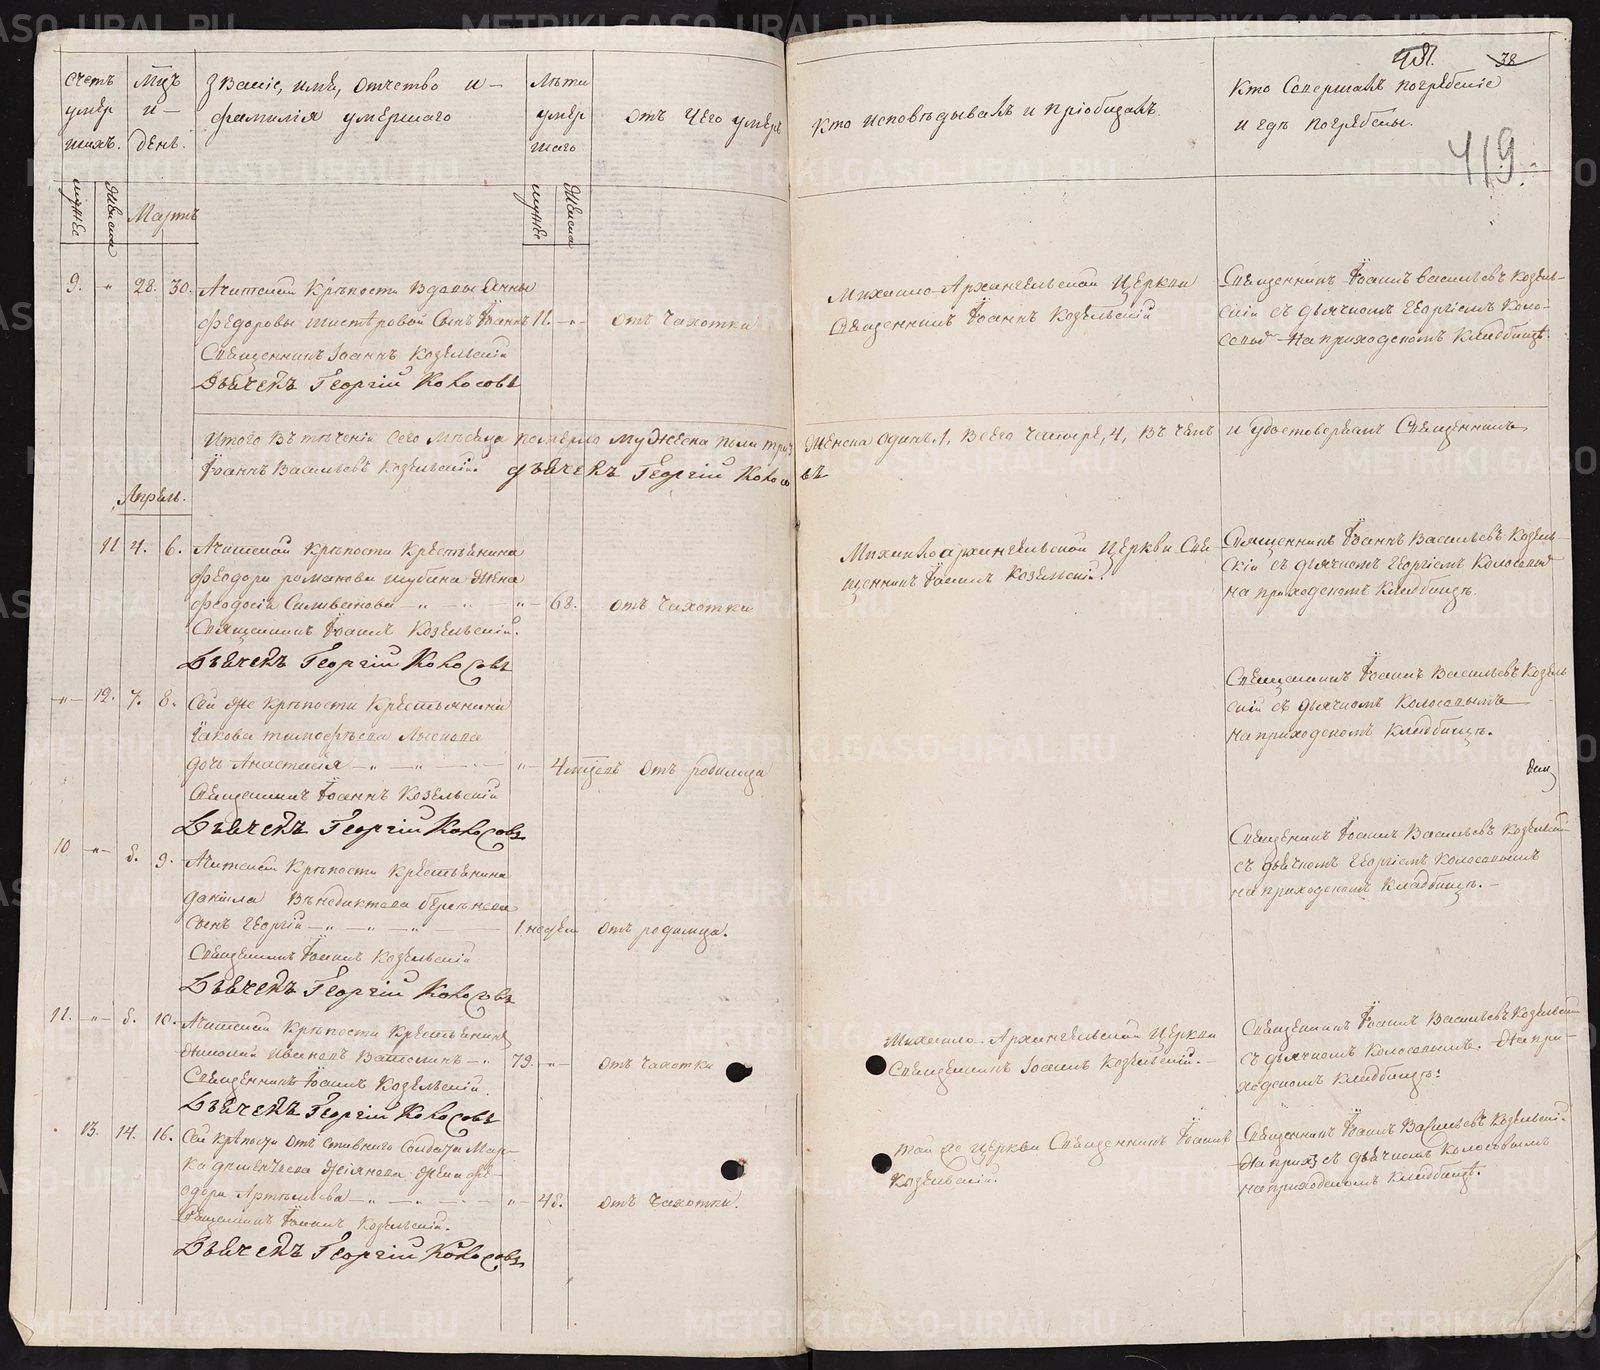 Счетъ умер шихъ.
Мцъ и день.
Званіе, имя, отчество и фамилія умершаго
Лѣта умер шаго
отъ чего умеръ
Кто исповѣдывалъ и пріобщалъ.
Кто совершалъ погребеніе и гдѣ погребены.
38
419.
мужес
женска
Мартъ
мужес
женска
9. - 28. 30. Ачитской Крѣпости Вдовы Анны
Федоровы сынъ Іоаннъ 11. - отъ чахотки
Священникъ Іоаннъ Козельскій
Дьячекъ Георгій Колосовъ
Михаило-Архангельской Церкви
Священникъ Іоаннъ Козельскій
Священникъ Іоаннъ Васильевъ Козель-
скій съ дьячкомъ Георгіемъ Коло-
совымъ На приходскомъ Кладбищѣ.
Итого въ теченіи сего Мѣсяца померло мужеска пола три, женска одинъ, 1, всего четыре, 4, въ чемъ и удостовѣряемъ Священникъ
Іоаннъ Васильевъ Козельскій. дьячекъ Георгій Колосовъ
Апрѣль.
11 4. 6. Ачитской крѣпости крестьянина
Феодора романова шубина жена
Феодосія Силиванова - 68. отъ чахотки
Священникъ Іоаннъ Козельскій.
Дьячекъ Георгій Колосовъ
Михаилоархангельской Церкви Свя-
щенникъ Іоаннъ Козельскій.
Священникъ Іоаннъ Васильевъ Козель-
скій съ дьячкомъ Георгіемъ Колосовымъ
на приходскомъ Кладбищѣ.
- 12. 7. 8. Сей же крѣпости Крестьянина
Іакова тимофѣева
дочь Анастасія - 4 отъ родимца
Священникъ Іоаннъ Козельскій
Дьячекъ Георгій Колосовъ
Священникъ Іоаннъ Васильевъ Козель
скій съ дьячкомъ Колосовымъ
на приходскомъ Кладбищѣ.
10 - 8. 9. Ачитской Крѣпости Крестьянина
даніила Венедиктова
сынъ Георгій - 1. недѣли отъ родимца.
Священникъ Іоаннъ Козельскій
Дьячекъ Георгій Колосовъ
Священникъ Іоаннъ Васильевъ Козельскій
съ дьячкомъ Георгіемъ Колосовымъ
на приходскомъ Кладбищѣ. -
11. - 8. 10. Ачитской Крѣпости Крестьянинъ
Николай Ивановъ - 79. - отъ чахотки
Священникъ Іоаннъ Козельскій.
Дьячекъ Георгій Колосовъ
Михаило-Архангельской Церкви
Священникъ Іоаннъ Козельскій. -
Священникъ Іоаннъ Васильевъ Козельскій
съ дьячкомъ Колосовымъ. На при-
ходскомъ Кладбищѣ.
13. 14. 16. Сей крѣпости отставнаго Солдата Мар-
ка жена Фе-
одора Артемьева - 48. отъ чахотки.
Священникъ Іоаннъ Козельскій.
Дьячекъ Георгій Колосовъ
той же церкви Священникъ Іоаннъ
Козельскій.
Священникъ Іоаннъ Васильевъ Козельскій.
съ дьячкомъ Колосовымъ
на приходскомъ Кладбищѣ.
METRIKI.GASO-URAL.RU